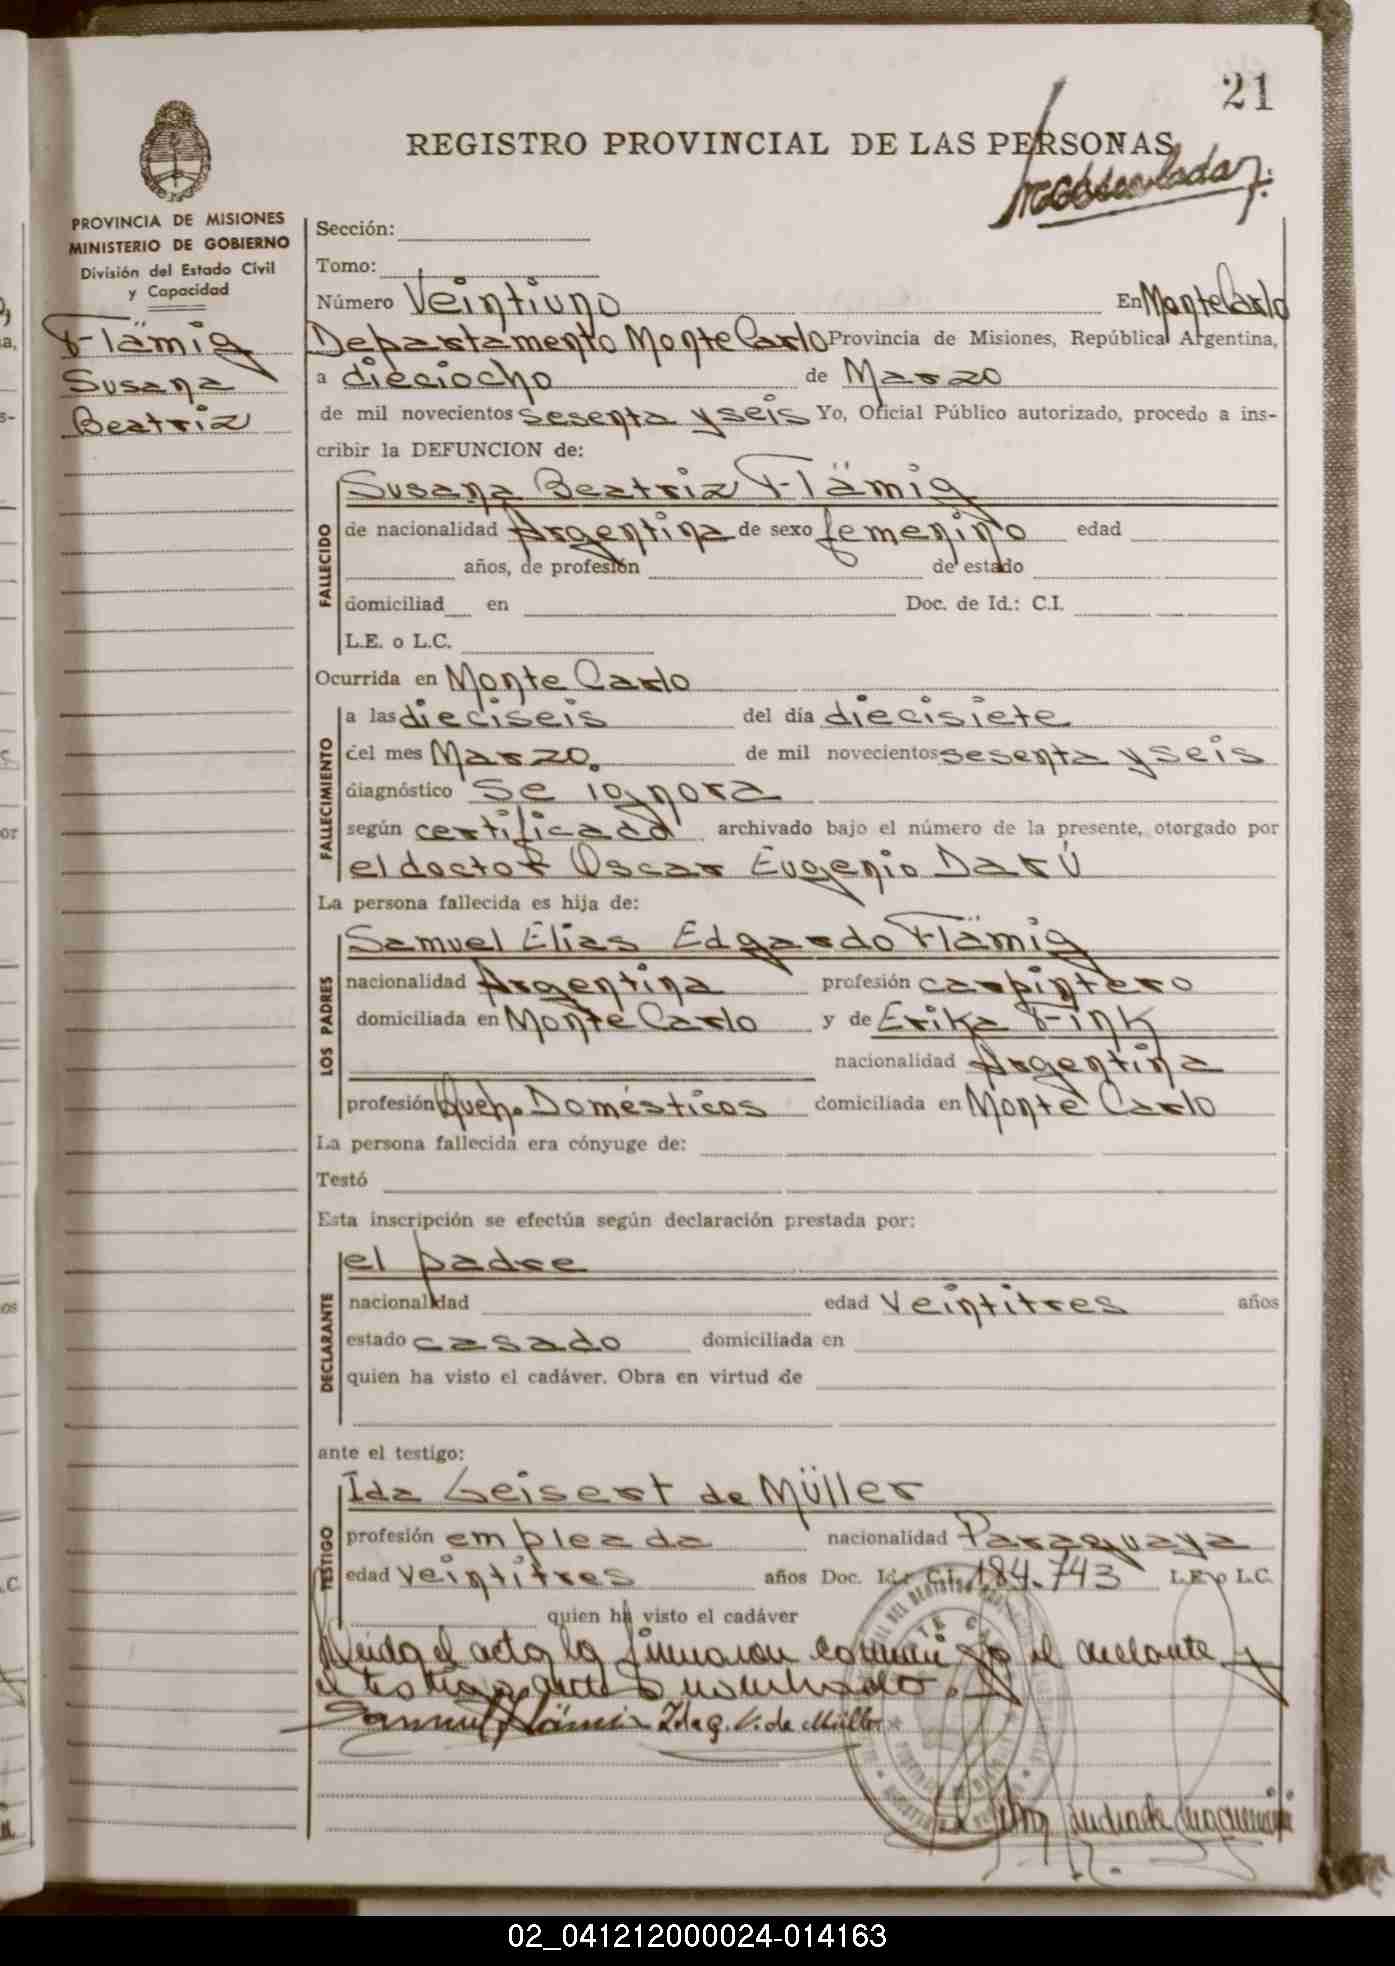 21
REGISTRO PROVINCIAL DE LAS PERSONAS
PROVINCIA DE MISIONES
MINISTERIO DE GOBIERNO
División del Estado Civil
y Capacidad
Flämig
Susana
Beatriz
Sección:
Tomo:
Número Veintiuno En Monte Carlo
Departamento Monte Carlo Provincia de Misiones, República Argentina,
a dieciocho de Marzo
de mil novecientos sesenta y seis Yo, Oficial Público autorizado, procedo a ins-
cribir la DEFUNCION de:
FALLECIDO
Susana Beatriz Flämig
de nacionalidad Argentina de sexo femenino edad
años, de profesión de estado
domiciliad en Doc. de Id.: C.I.
L.E. o L.C.
Ocurrida en Monte Carlo
FALLECIMIENTO
a las dieciseis del día diecisiete
del mes Marzo. de mil novecientos sesenta y seis
diagnóstico se ignora
según certificado archivado bajo el número de la presente, otorgado por
el doctor Oscar Eugenio Darú
La persona fallecida es hija de:
LOS PADRES
Samuel Elias Edgardo Flämig
nacionalidad Argentina profesión carpintero
domiciliada en Monte Carlo y de Erika Fink
nacionalidad Argentina
profesión Queh. Domésticos domiciliada en Monte Carlo
La persona fallecida era cónyuge de:
Testó
Esta inscripción se efectúa según declaración prestada por:
DECLARANTE
el padre
nacionalidad edad Veintitres años
estado casado domiciliada en
quien ha visto el cadáver. Obra en virtud de
ante el testigo:
TESTIGO
Ida Geisert de Müller
profesión empleada nacionalidad Paraguaya
edad Veintitres años Doc. Id.: C.I. 184.743 L.E. o L.C.
quien ha visto el cadáver
Leida el acta la firmaron conmigo el declarante y
el testigo antes nombrado.
Samuel Flämig Ida G. V. de Müller
02_041212000024-014163